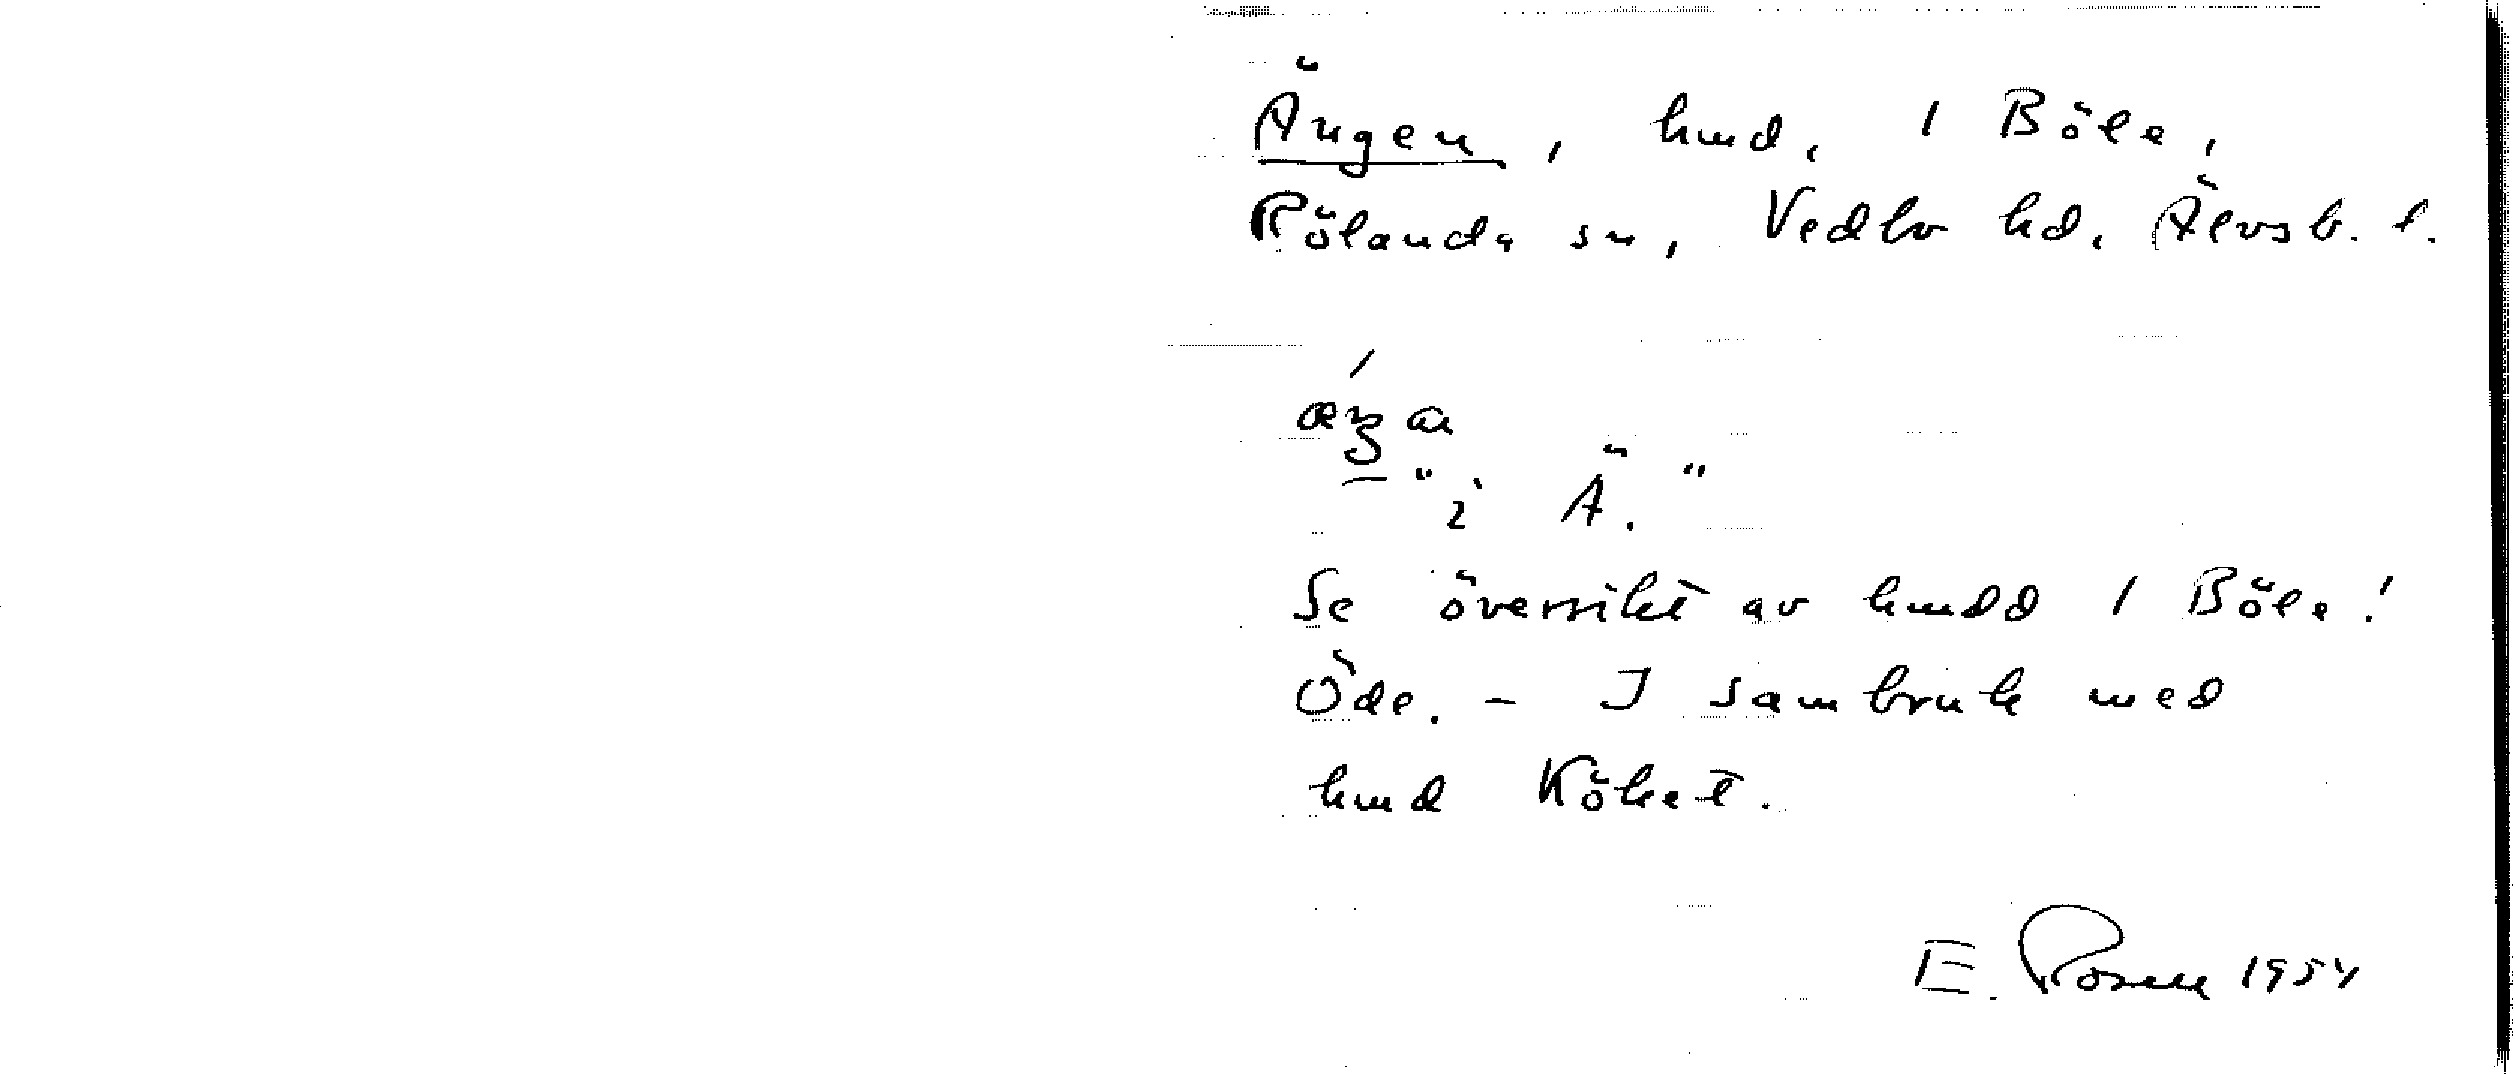 Ängen, hmd, 1 Böle,
Rölanda sn, Vedbo hd, Älvsb. l.
"i Ä."
Se översikt av hmdd 1 Böle!
Öde. - I sambruk med
hmd Köket.
E. Rosell 1954